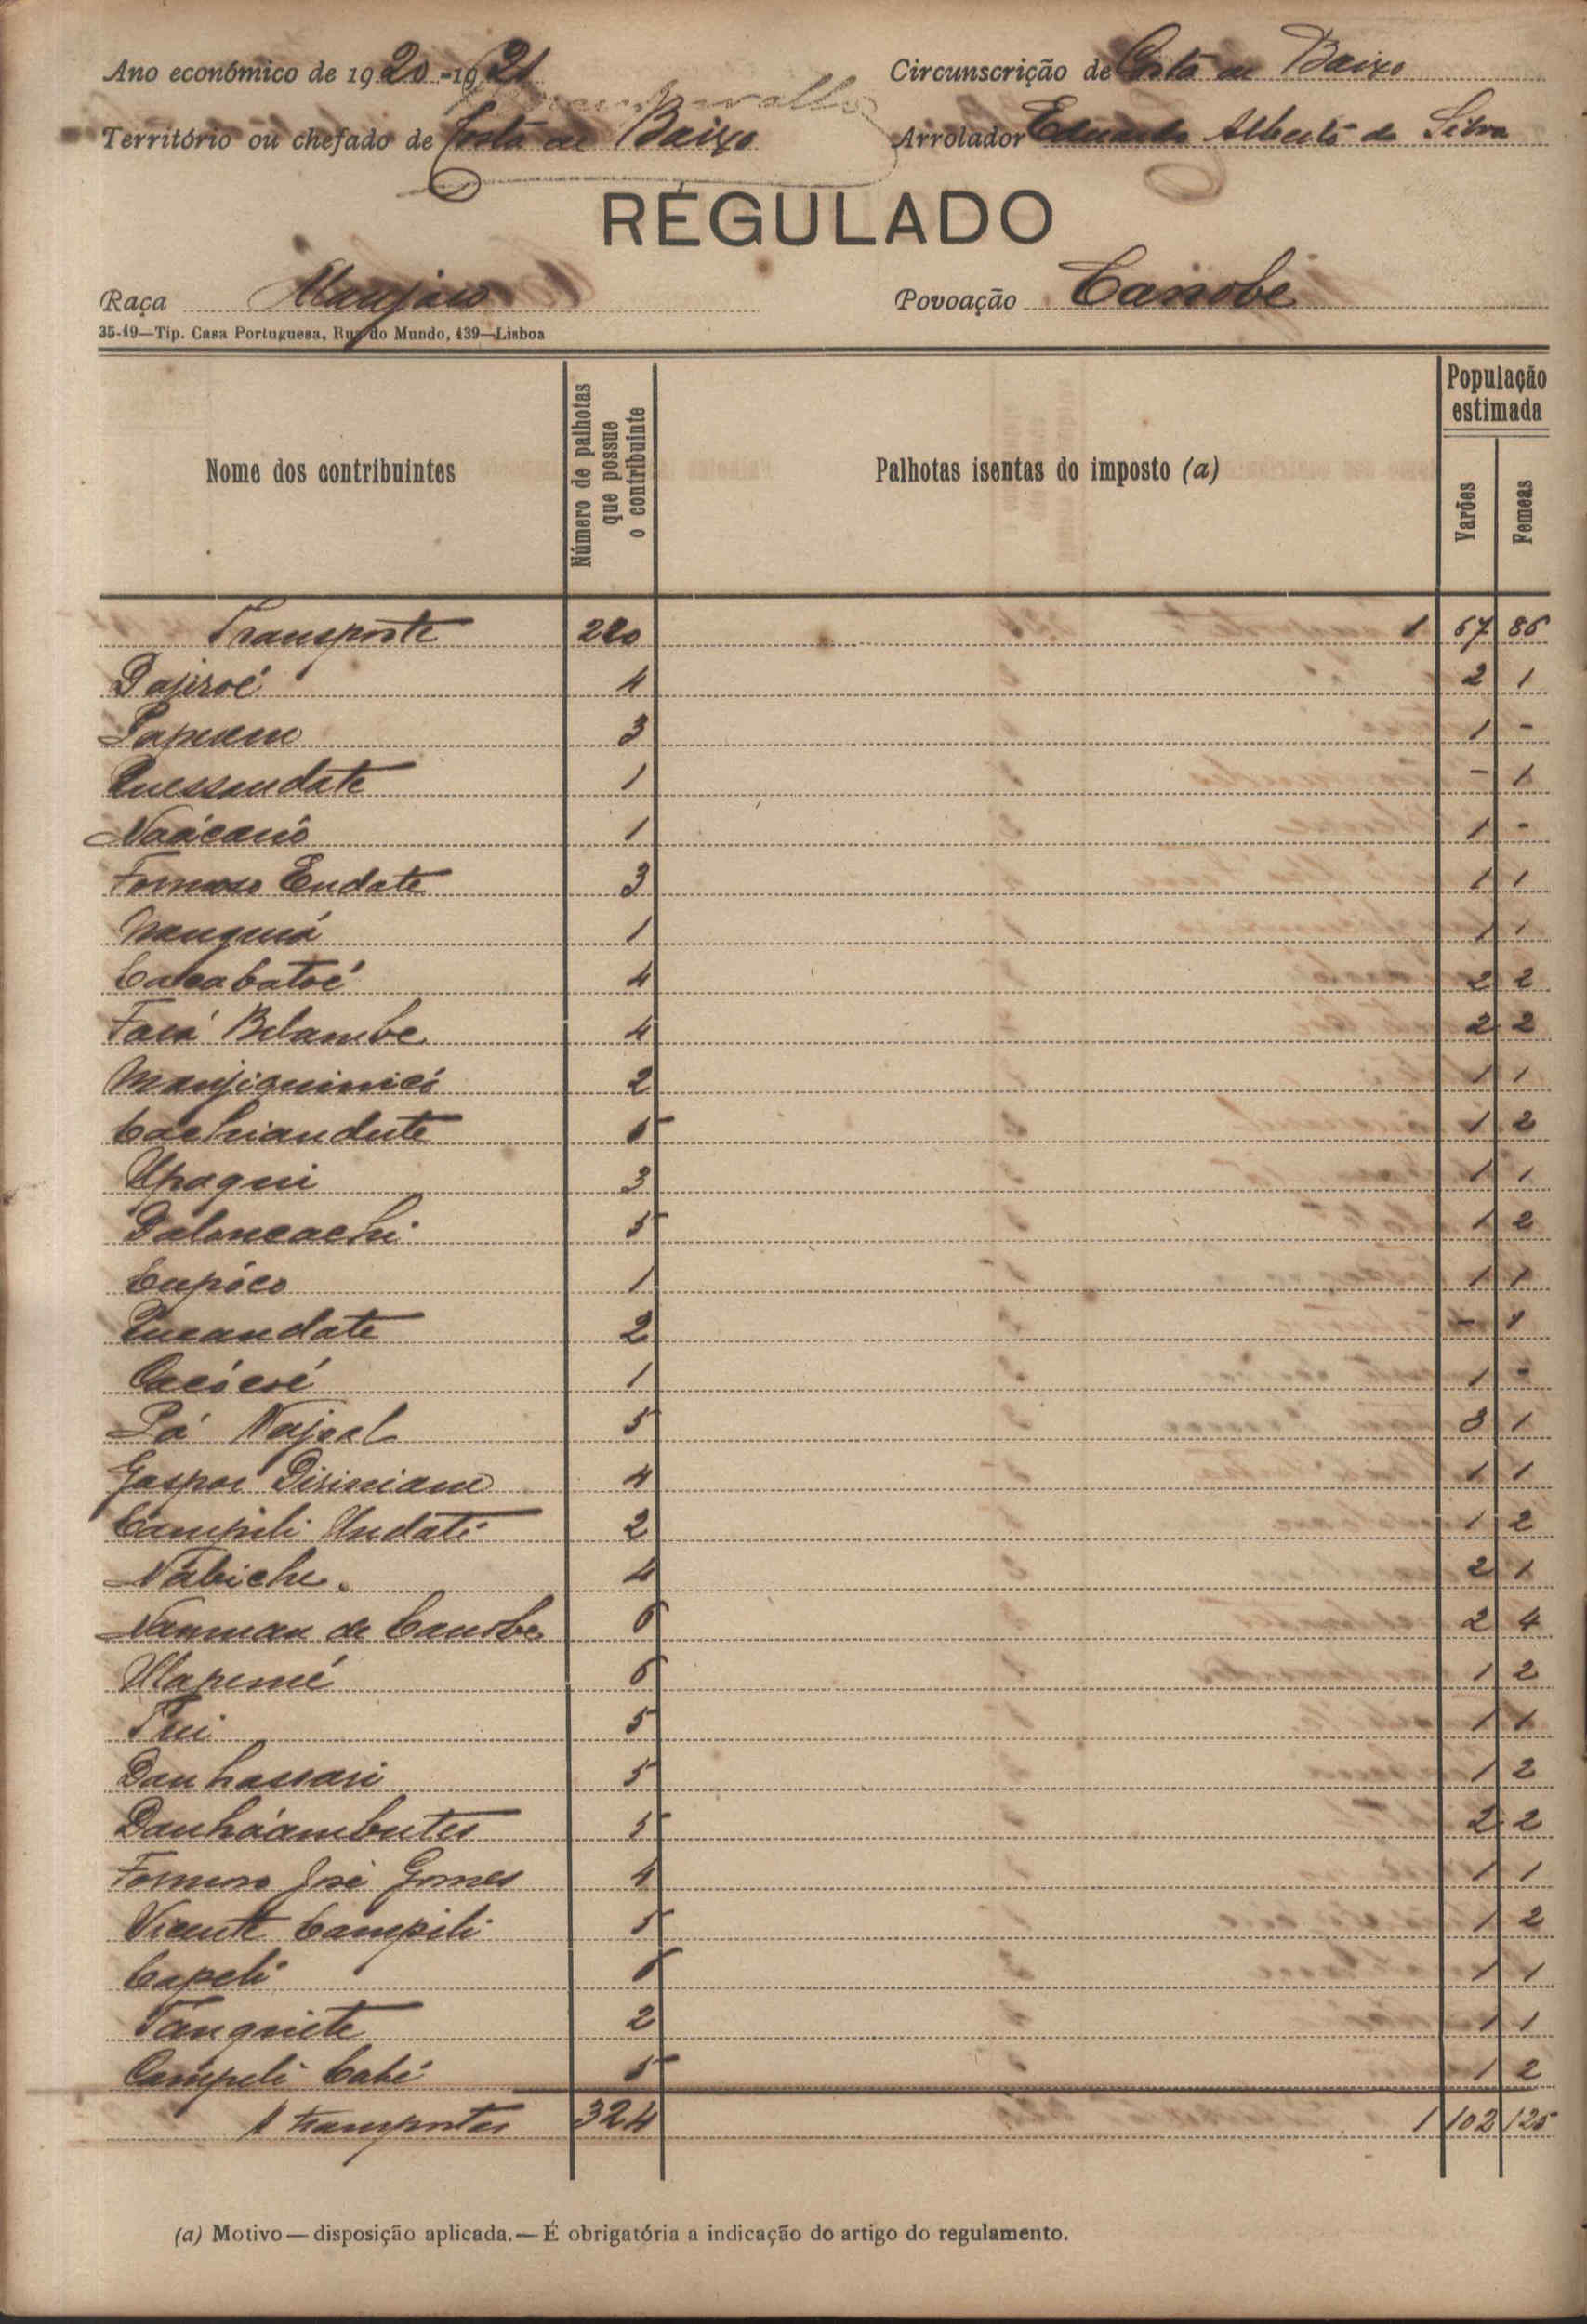 Ano económico de 1920-1921 Circunscrição de Costa de Baixo
Território ou chefado de Costa de Baixo Arrolador Eduardo Alberto da Silva
RÉGULADO
Raça Manjaco Povoação Canobe
35-19—Tip. Casa Portuguesa, Rua do Mundo, 139—Lisboa
Nome dos contribuintes Número de palhotas que possue o contribuinte Palhotas isentas do imposto (a) População estimada Varões Femeas
Transporte 220 1 67 86
Dajiroé 4 2 1
3 1 -
Quessundate 1 - 1
Naácanó 1 1 -
Formoso Endate 3 1 1
Nanquiá 1 1 1
Cacabatoé 4 2 2
Facá Belambe 4 2 2
Manjiquinicó 2 1 1
Cachiandute 6 1 2
Upaqui 3 1 1
Daloncachi 5 1 2
Cupóco 1 1 1
Queandate 2 - 1
1 1 -
Pá Najoal 5 3 1
Gaspar Disiniam 4 1 1
Campili Undate 2 1 2
Nabiche 4 2 1
Nanman de Canobe 6 2 4
Ulapemé 6 1 2
Tui 5 1 1
Danhassari 5 1 2
Danháambutes 5 2 2
Formoso José Gomes 4 1 1
Vicente Campili 5 1 2
Capeli 6 1 1
Tanquiete 2 1 1
Campeli Cabé 5 1 2
A transportar 324 1 102 125
(a) Motivo — disposição aplicada. — É obrigatória a indicação do artigo do regulamento.